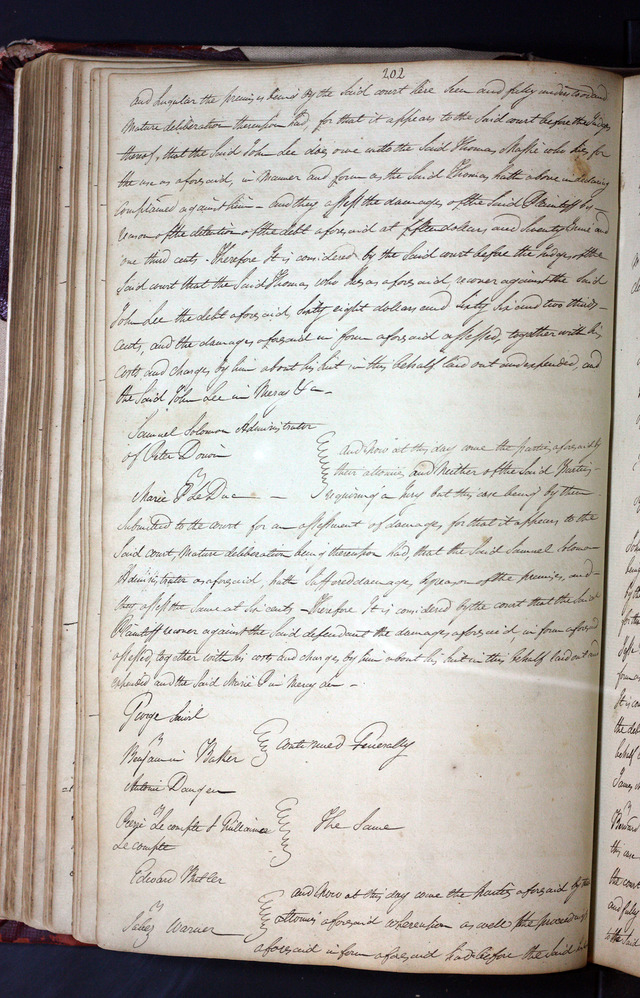 202
and singular the premises being by the said court here seen and fully understood and
mature deliberation thereupon had, for that it appears to the said court before the Judges
thereof, that the said John Lee does owe unto the said Thomas Massie who sues for
the use as aforesaid, in manner and form as the said Thomas hath above in declaring
complained against him - and they assess the damages of the said Plaintiff by
reason of the detention of the debt aforesaid at fifteen dollars and seventy nine and
one third cents - Therefore It is considered by the said court before the Judges of the
said court that the said Thomas who sues as aforesaid, recover against the said
John Lee the debt aforesaid, sixty eight dollars and sixty six and two thirds
cents, and the damages aforesaid in form aforesaid assessed, together with his
costs and charges by him about his suit in this behalf laid out and expended, and
the said John Lee in Mercy &c -
Samuel Solomon Administrator
of Peter Dorin
v
Marie P Le Duc -
and now at this day come the parties aforesaid by
their attornies and Neither of the said Parties
requiring a Jury but this case being by them
submitted to the court for an assessment of damages, for that it appears to the
said court, Mature deliberation being thereupon had, that the said Samuel Solomon
Administrator as aforesaid, hath suffered damages by reason of the premises, and
they assess the same at six cents - Therefore It is considered by the court that the said
Plaintiff recover against the said defendant the damages aforesaid in form aforesaid
assessed, together with his costs and charges by him about his suit in this behalf laid out and
expended and the said Marie P in Mercy &c -
George
v
Benjamin Baker
continued Generally
Antoine Dangen
v
Lecompte & Guillaume
Lecompte
The Same
Edward Butler
v
Jabez Warner
and now at this day come the parties aforesaid by their
attornies aforesaid whereupon as well the proceedings
aforesaid in form aforesaid had before the said